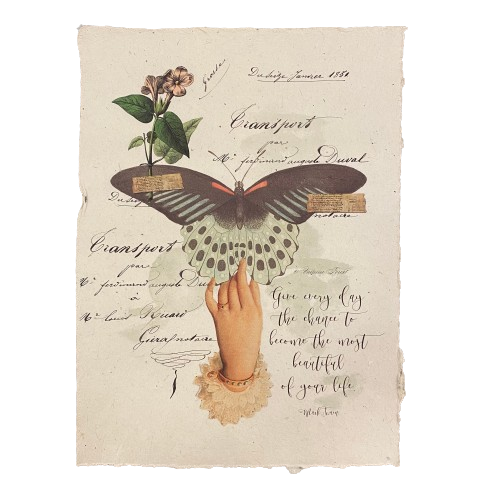 Duseize Janvier 1886
Transport
par
Mr. ferdinand auguste Duval
notaire
Transport
par
Mr. ferdinand auguste Du
à
Mr. Louis Ruard
notaire
Give every day
the chance to
become the most
beautiful
of your life
-Mark Twain